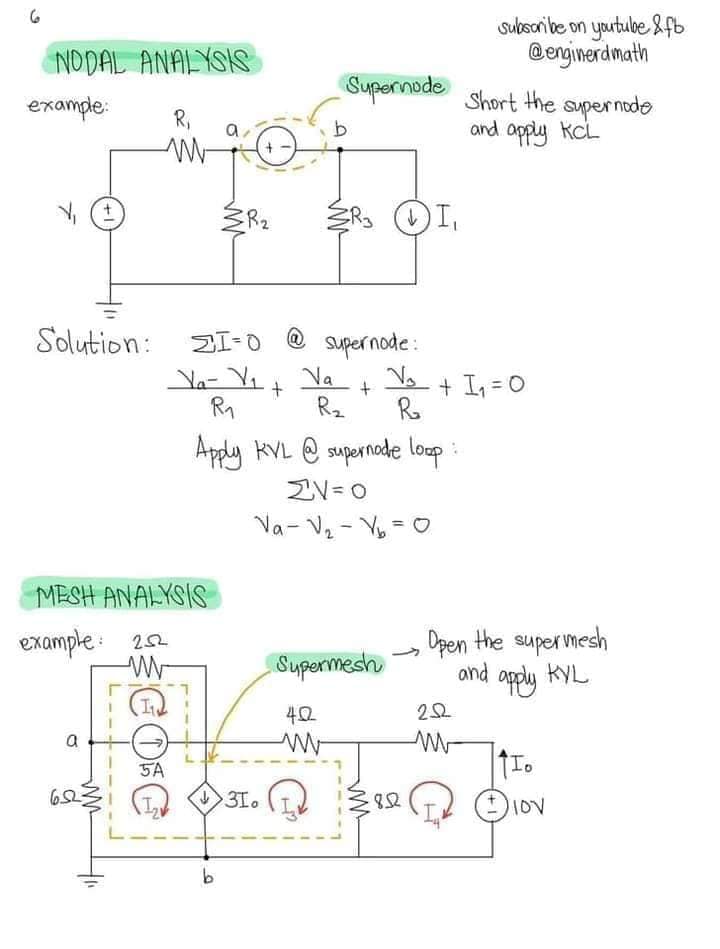 6
subscribe on youtube & fb
@enginerdmath
NODAL ANALYSIS
Supernode
example:
Short the supernode
and apply KCL
R₁
a
b
+ -
V₁
+
-
R₂
R₃
I₁
Solution: ΣI=0 @ supernode:
Va- V₁ + Va + V₃ + I₁ = 0
R₁ R₂ R₃
Apply KVL @ supernode loop :
ΣV=0
Va- V₂ - Vb = 0
MESH ANALYSIS
example: 2Ω
Supermesh
→ Open the supermesh
and apply KVL
I₁
4Ω
2Ω
a
5A
I₀
6Ω
I₂
3I₀
I₃
8Ω
I₄
+
-
10V
b